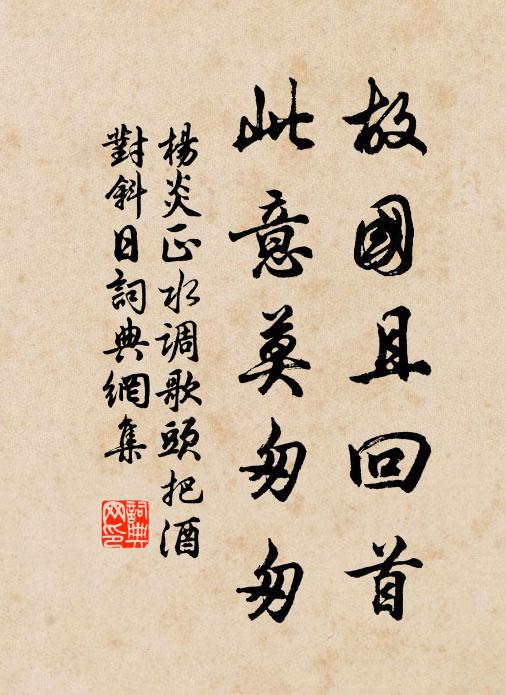 故國且回首
此意莫匆匆
楊炎正水调歌頭把酒
對斜日詞典網集
詞典网印